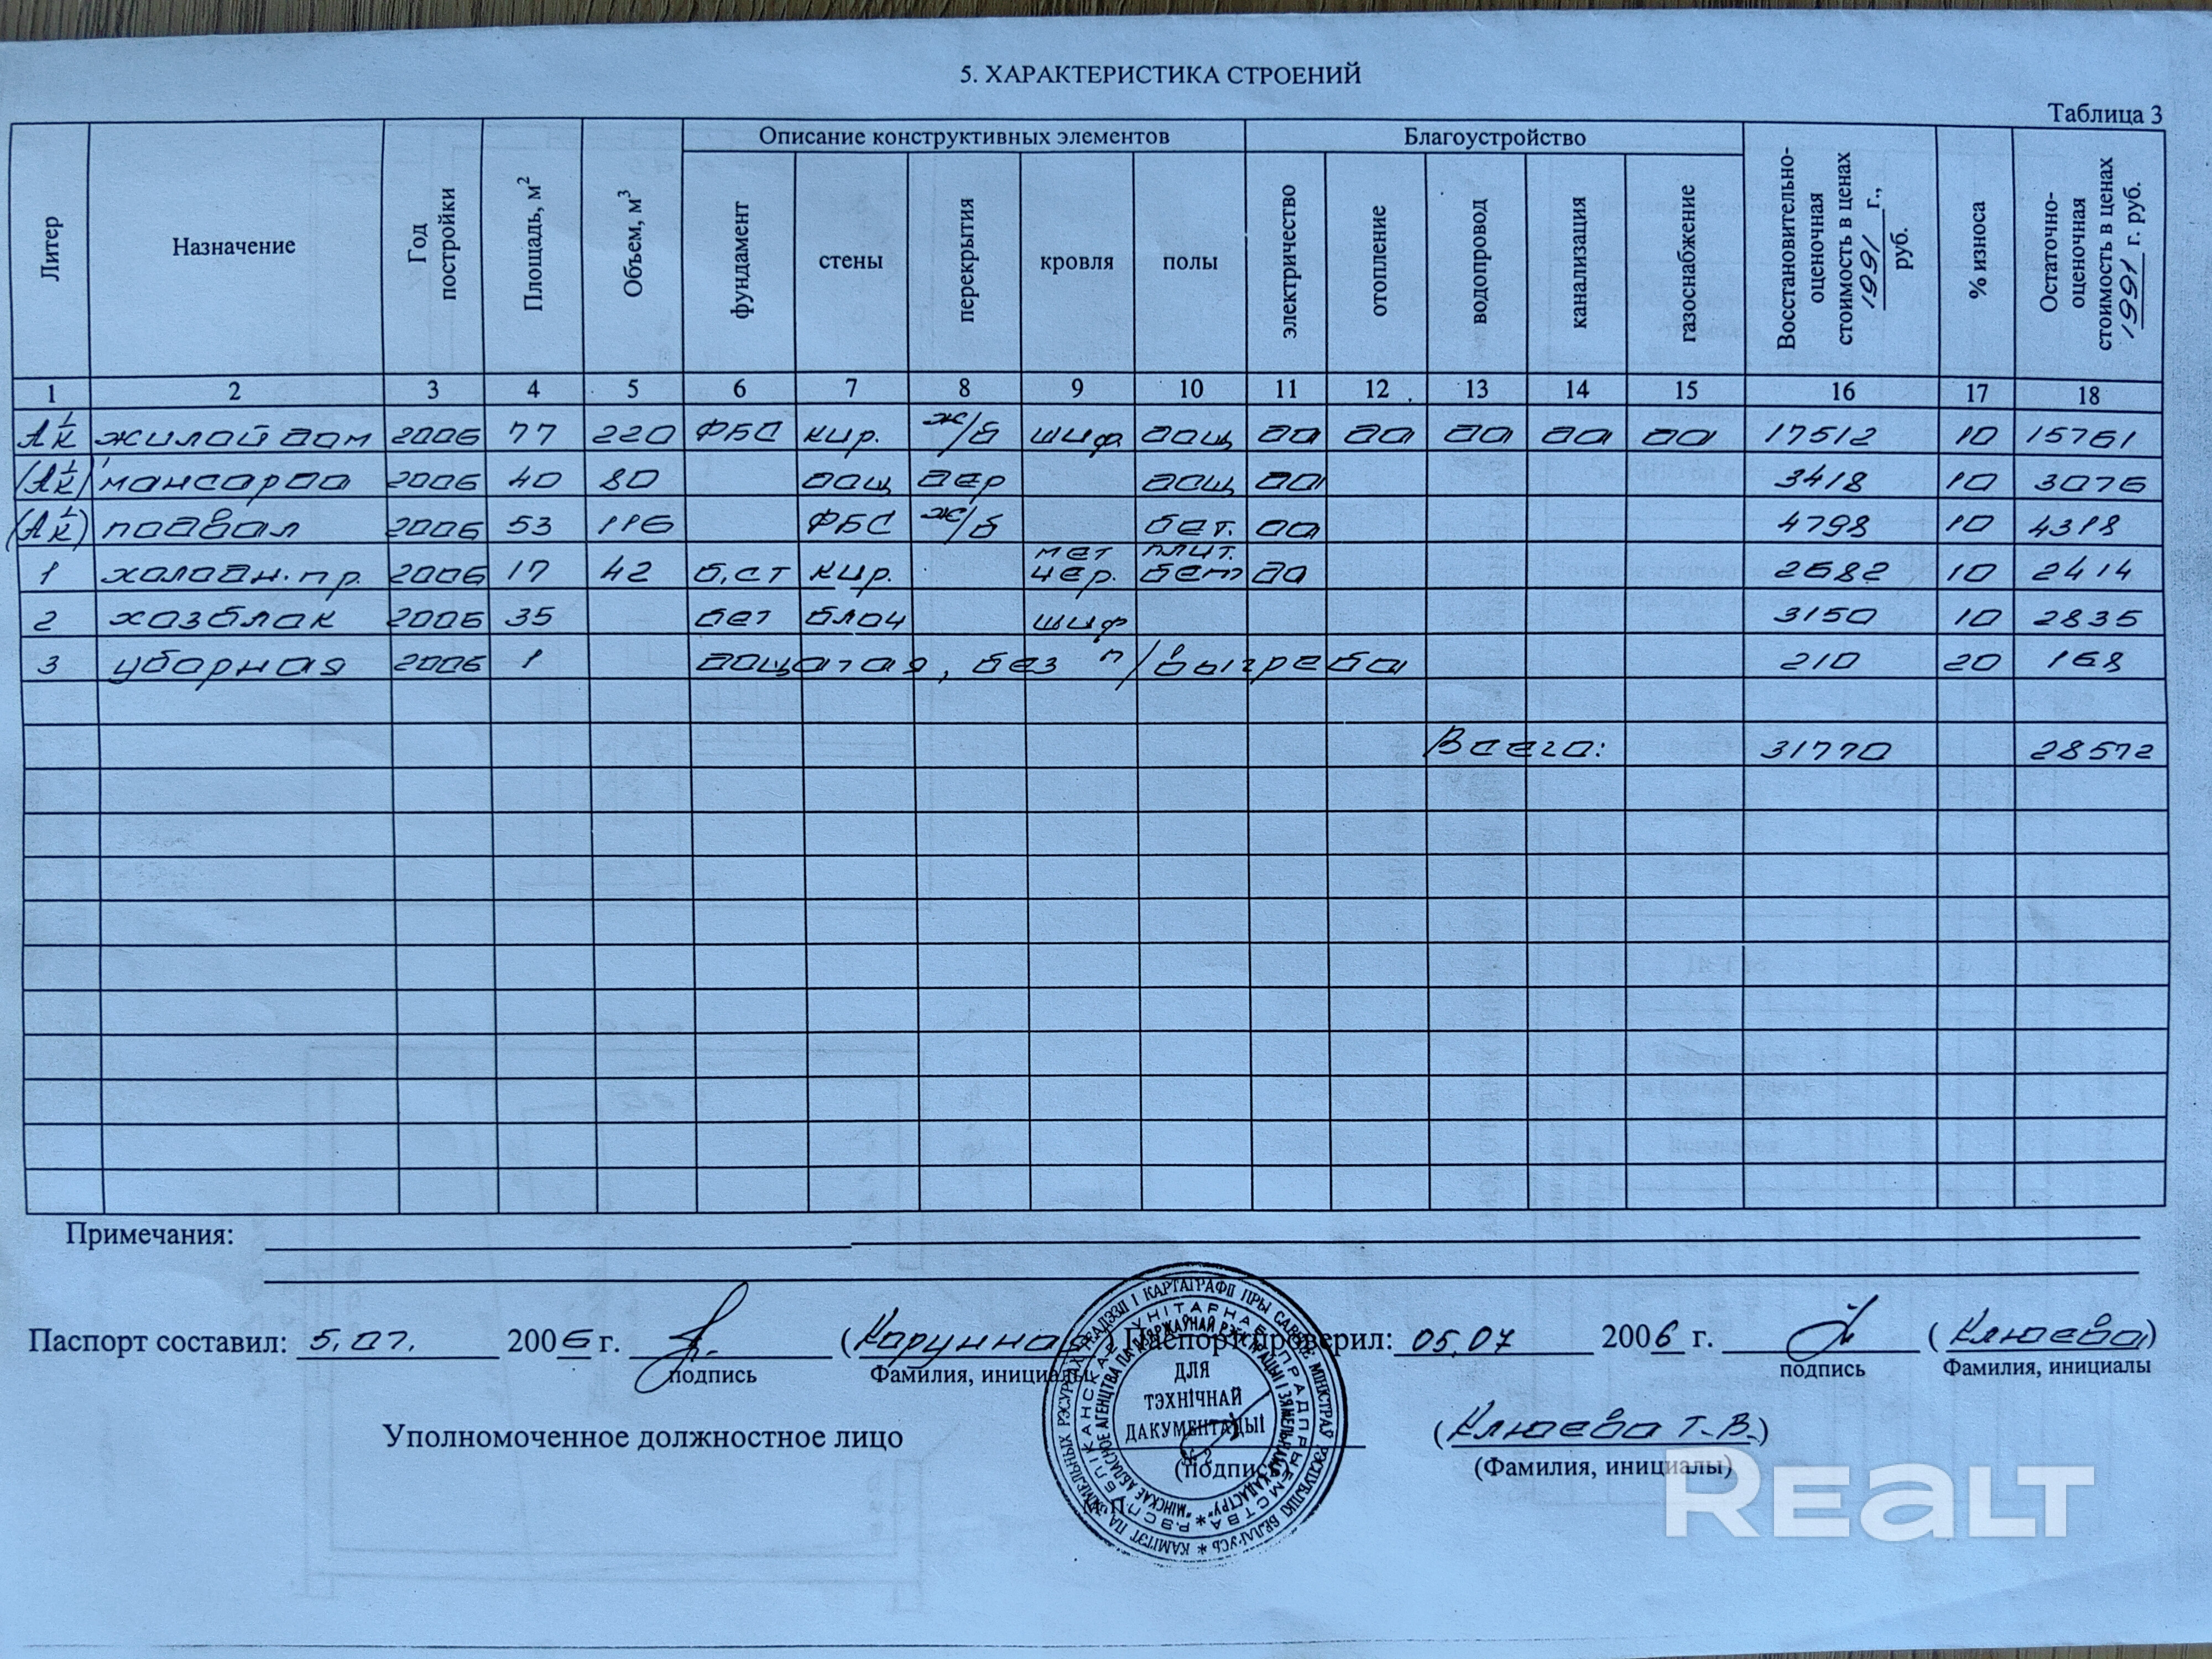 5. ХАРАКТЕРИСТИКА СТРОЕНИЙ
Таблица 3
Литер Назначение Год постройки Площадь, м² Объем, м³ Описание конструктивных элементов Благоустройство Восстановительно-оценочная стоимость в ценах 1991 г., руб. % износа Остаточно-оценочная стоимость в ценах 1991 г. руб.
фундамент стены перекрытия кровля полы электричество отопление водопровод канализация газоснабжение
1 2 3 4 5 6 7 8 9 10 11 12 13 14 15 16 17 18
А 1/к жилой дом 2006 77 220 ФБС кир. ж/б шиф дощ да да да да да 17512 10 15761
(А 1/к) мансарда 2006 40 80 дощ дер дощ да 3418 10 3076
(А 1/к) подвал 2006 53 116 ФБС ж/б бет. да 4798 10 4318
1 холодн. пр. 2006 17 42 б,ст кир. мет чер. плит. бет да 2682 10 2414
2 хозблок 2006 35 бет блоч шиф 3150 10 2835
3 уборная 2006 1 дощатая, без п/выгреба 210 20 168
Всего: 31770 28572
Примечания:
Паспорт составил: 5.07. 2006 г. ( ) Паспорт проверил: 05.07 2006 г. (Клюева)
подпись Фамилия, инициалы подпись Фамилия, инициалы
Уполномоченное должностное лицо (Клюева Т.В.)
(подпись) (Фамилия, инициалы)
М.П.
ДЛЯ
ТЭХНІЧНАЙ
ДАКУМЕНТАЦЫІ
№ 2
REALT